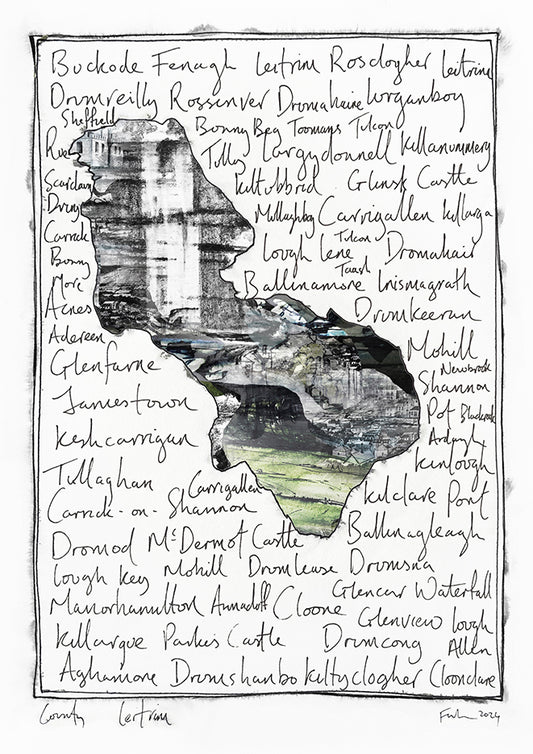 Buckode Fenagh Leitrim Rosclogher Leitrim
Drumreilly Rossinver Dromahaire Lurganboy
Sheffield Bonny Beg Toomans Tulcon
Tully Largydonnell Killanummery
Scardaun Kiltubbrid Glensk Castle
Drung Mullaghboy Carrigallen Killarga
Carrick Lough Lene Tulcon Dromahair
Bonny Taash
More Ballinamore Inismagrath
Acres Drumkeeran
Adereen Mohill
Glenfarne Newbrook
Shannon
Jamestown Pot Blackrock
Keshcarrigan Kinlough
Tullaghan Carrigallen Kilclare Pont
Carrick-on-Shannon
Dromod McDermot Castle Ballinagleagh
Lough Key Mohill Drumlease Drumsna
Manorhamilton Annaduff Cloone Glencar Waterfall
Glenview Lough
Killargue Parkes Castle Drumcong Allen
Aghamore Drumshanbo Kiltyclogher Cloonclare
County Leitrim 2024